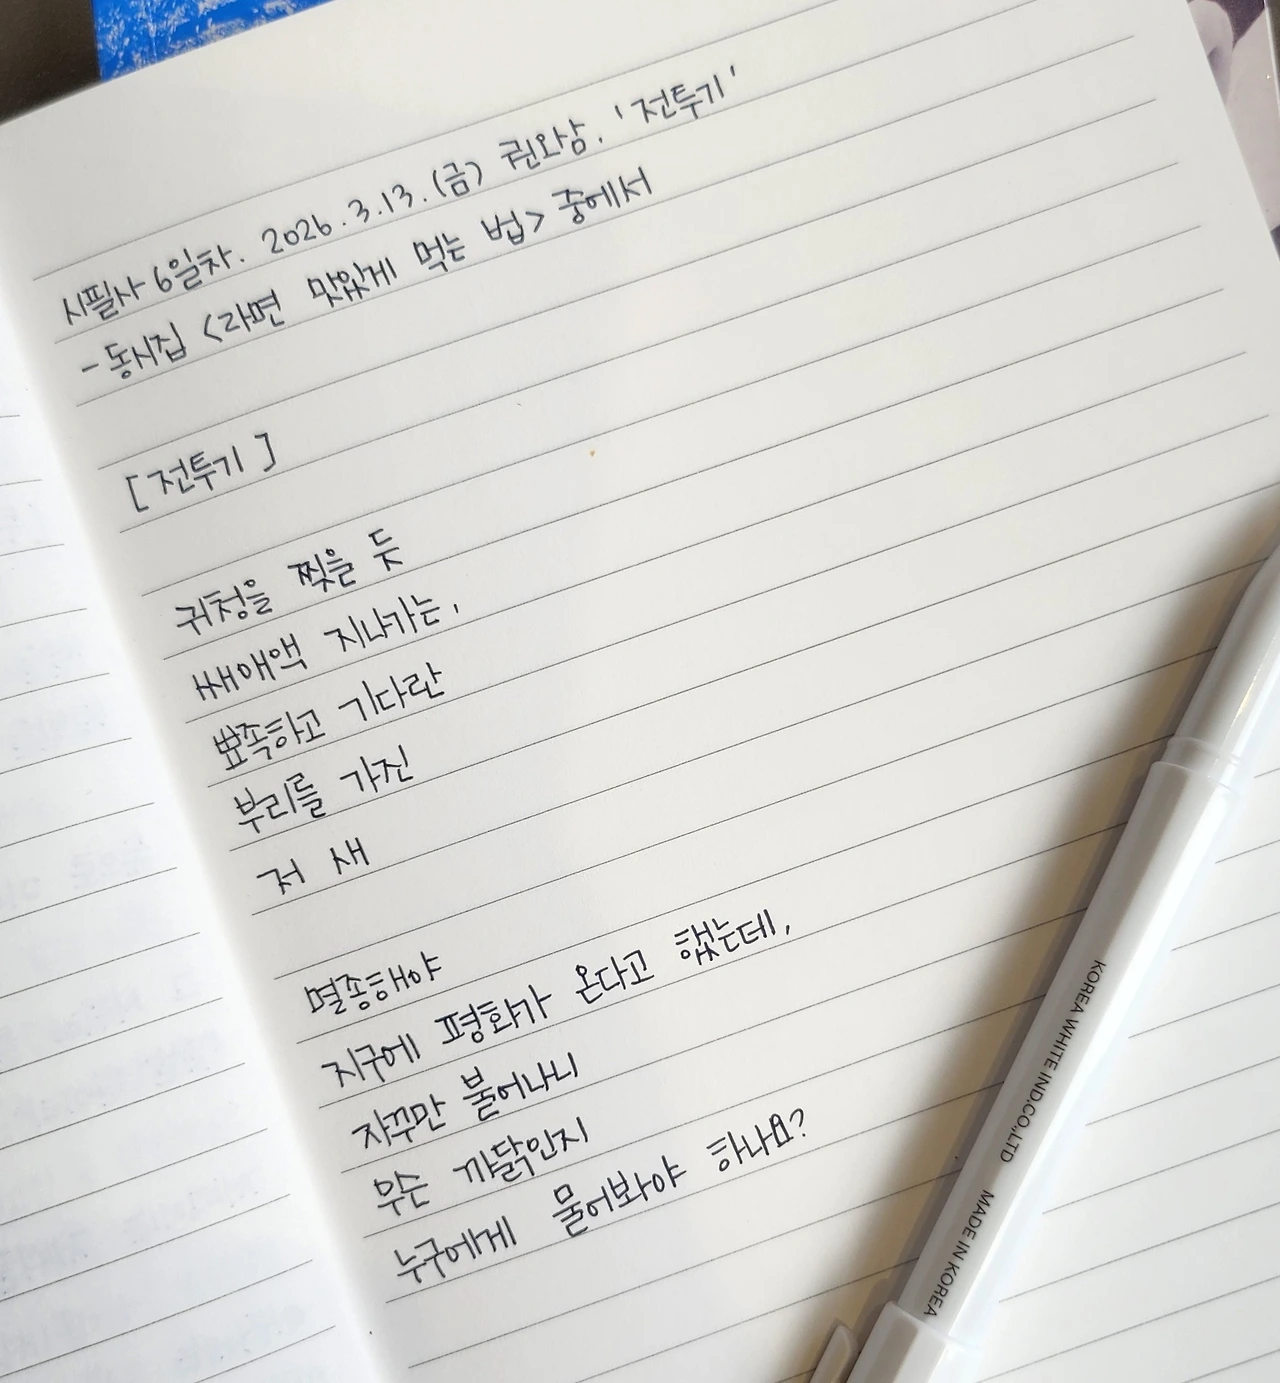 시필사 6일차. 2026.3.13.(금) 권오삼. '전투기'
- 동시집 <라면 맛있게 먹는 법> 중에서
[전투기]
귀청을 찢을 듯
쌔애액 지나가는,
뾰족하고 기다란
부리를 가진
저 새
멸종해야
지구에 평화가 온다고 했는데,
자꾸만 불어나니
무슨 까닭인지
누구에게 물어봐야 하나요?
KOREA WHITE IND.CO.,LTD MADE IN KOREA